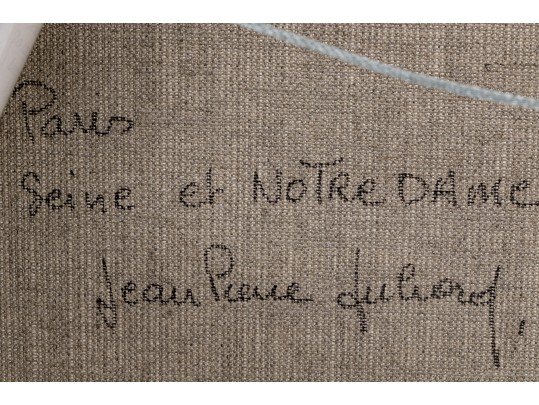 Paris
Seine et NOTRE DAME
Jean Pierre Dubord